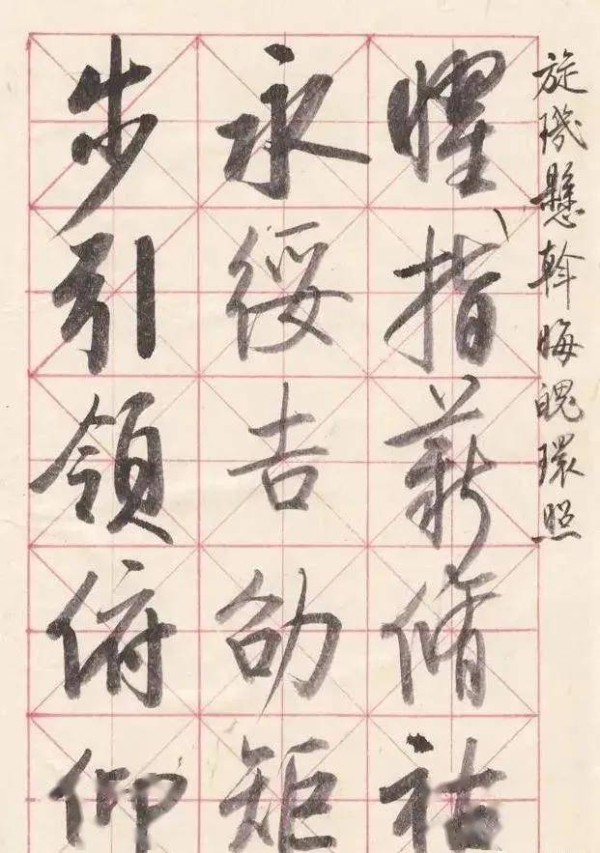 旋璣懸斡晦魄環照
耀指薪脩祜
永綏吉劭矩
步引領俯仰